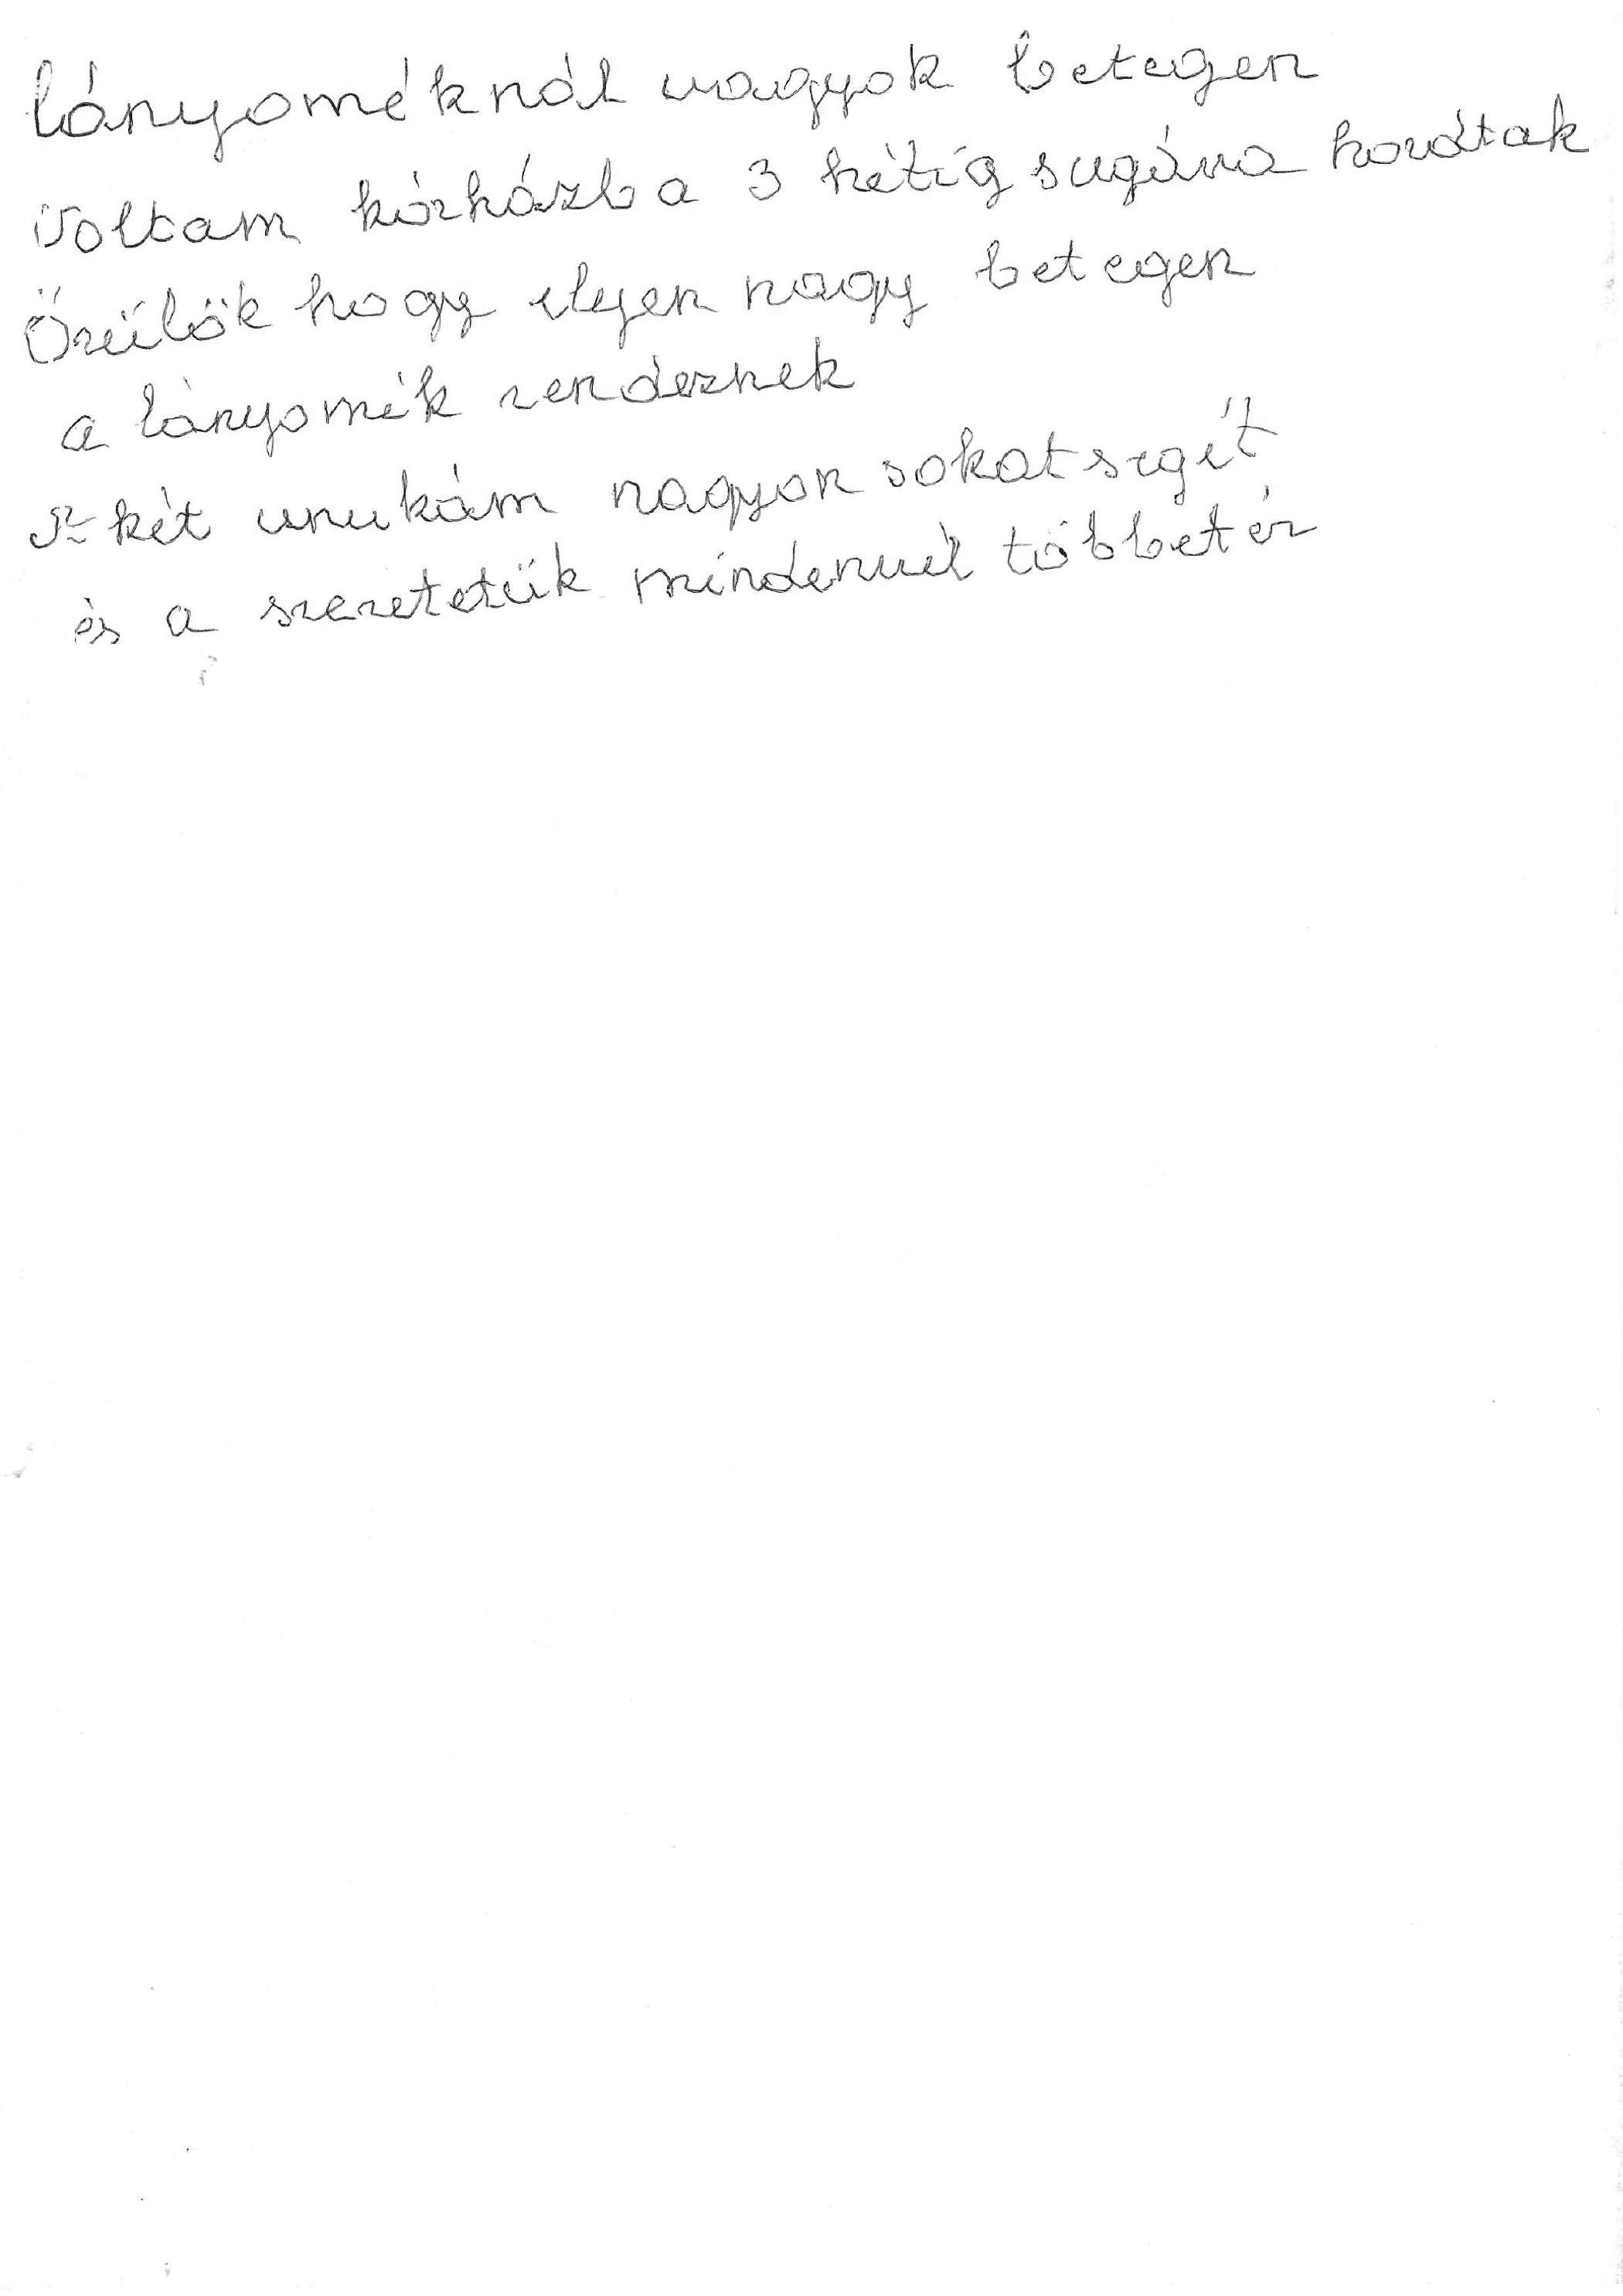 lányoméknál vagyok betegen
voltam kórházba 3 hétig sugára hordtak
Örülök hogy ilyen nagy betegen
a lányomék rendeznek
két unukám nagyon sokat segít
és a szeretetük mindenuél többet ér